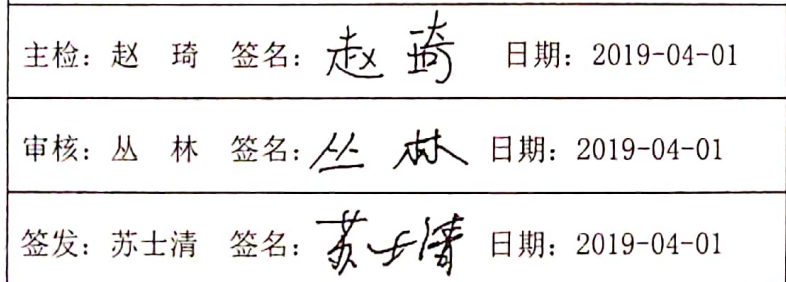 主检：赵 琦 签名：赵琦 日期：2019-04-01
审核：丛 林 签名：丛林 日期：2019-04-01
签发：苏士清 签名：苏士清 日期：2019-04-01